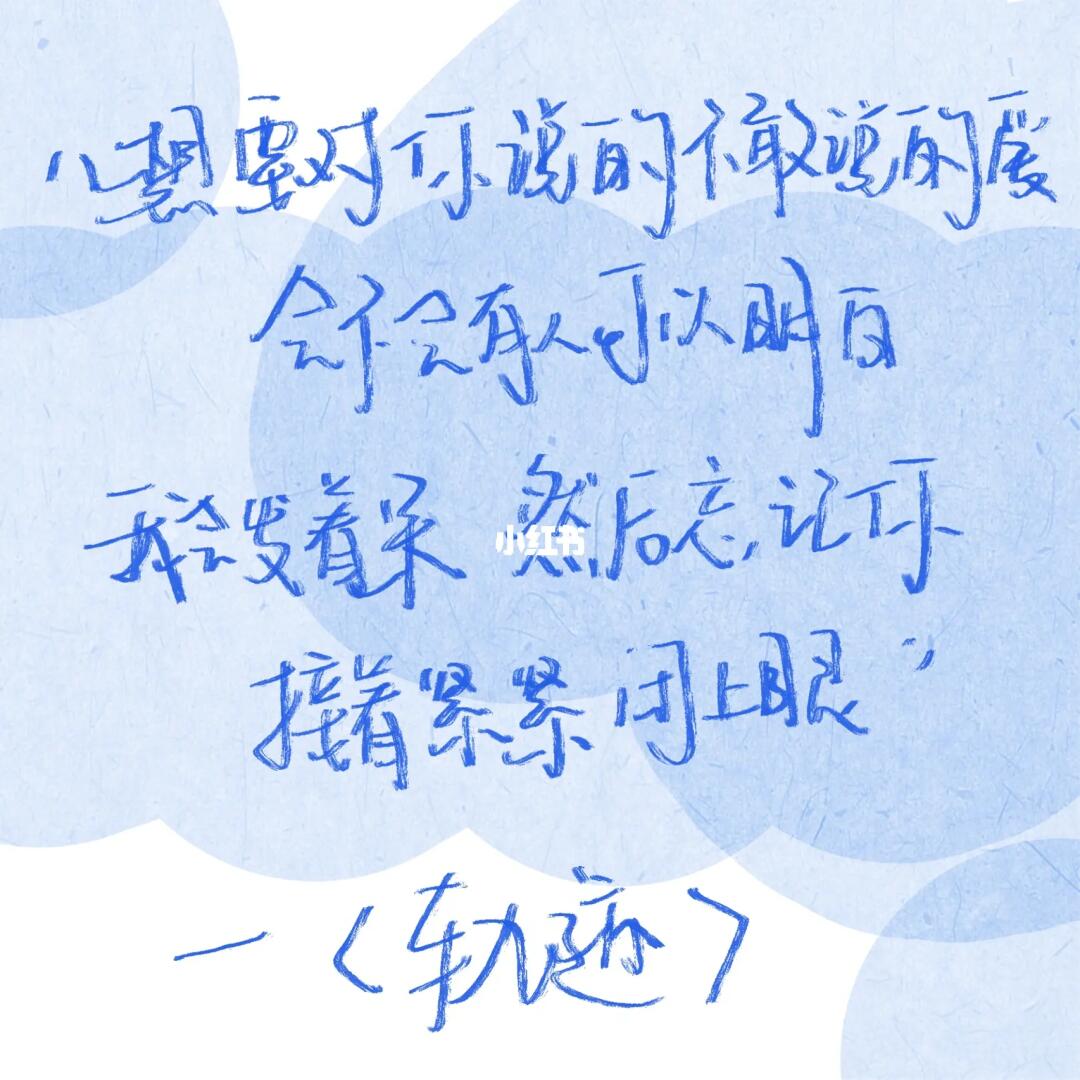 “想要对你说的 不敢说的爱
会不会有人可以明白
我会发着呆 然后忘记你
接着紧紧闭上眼”
—〈轨迹〉
小红书